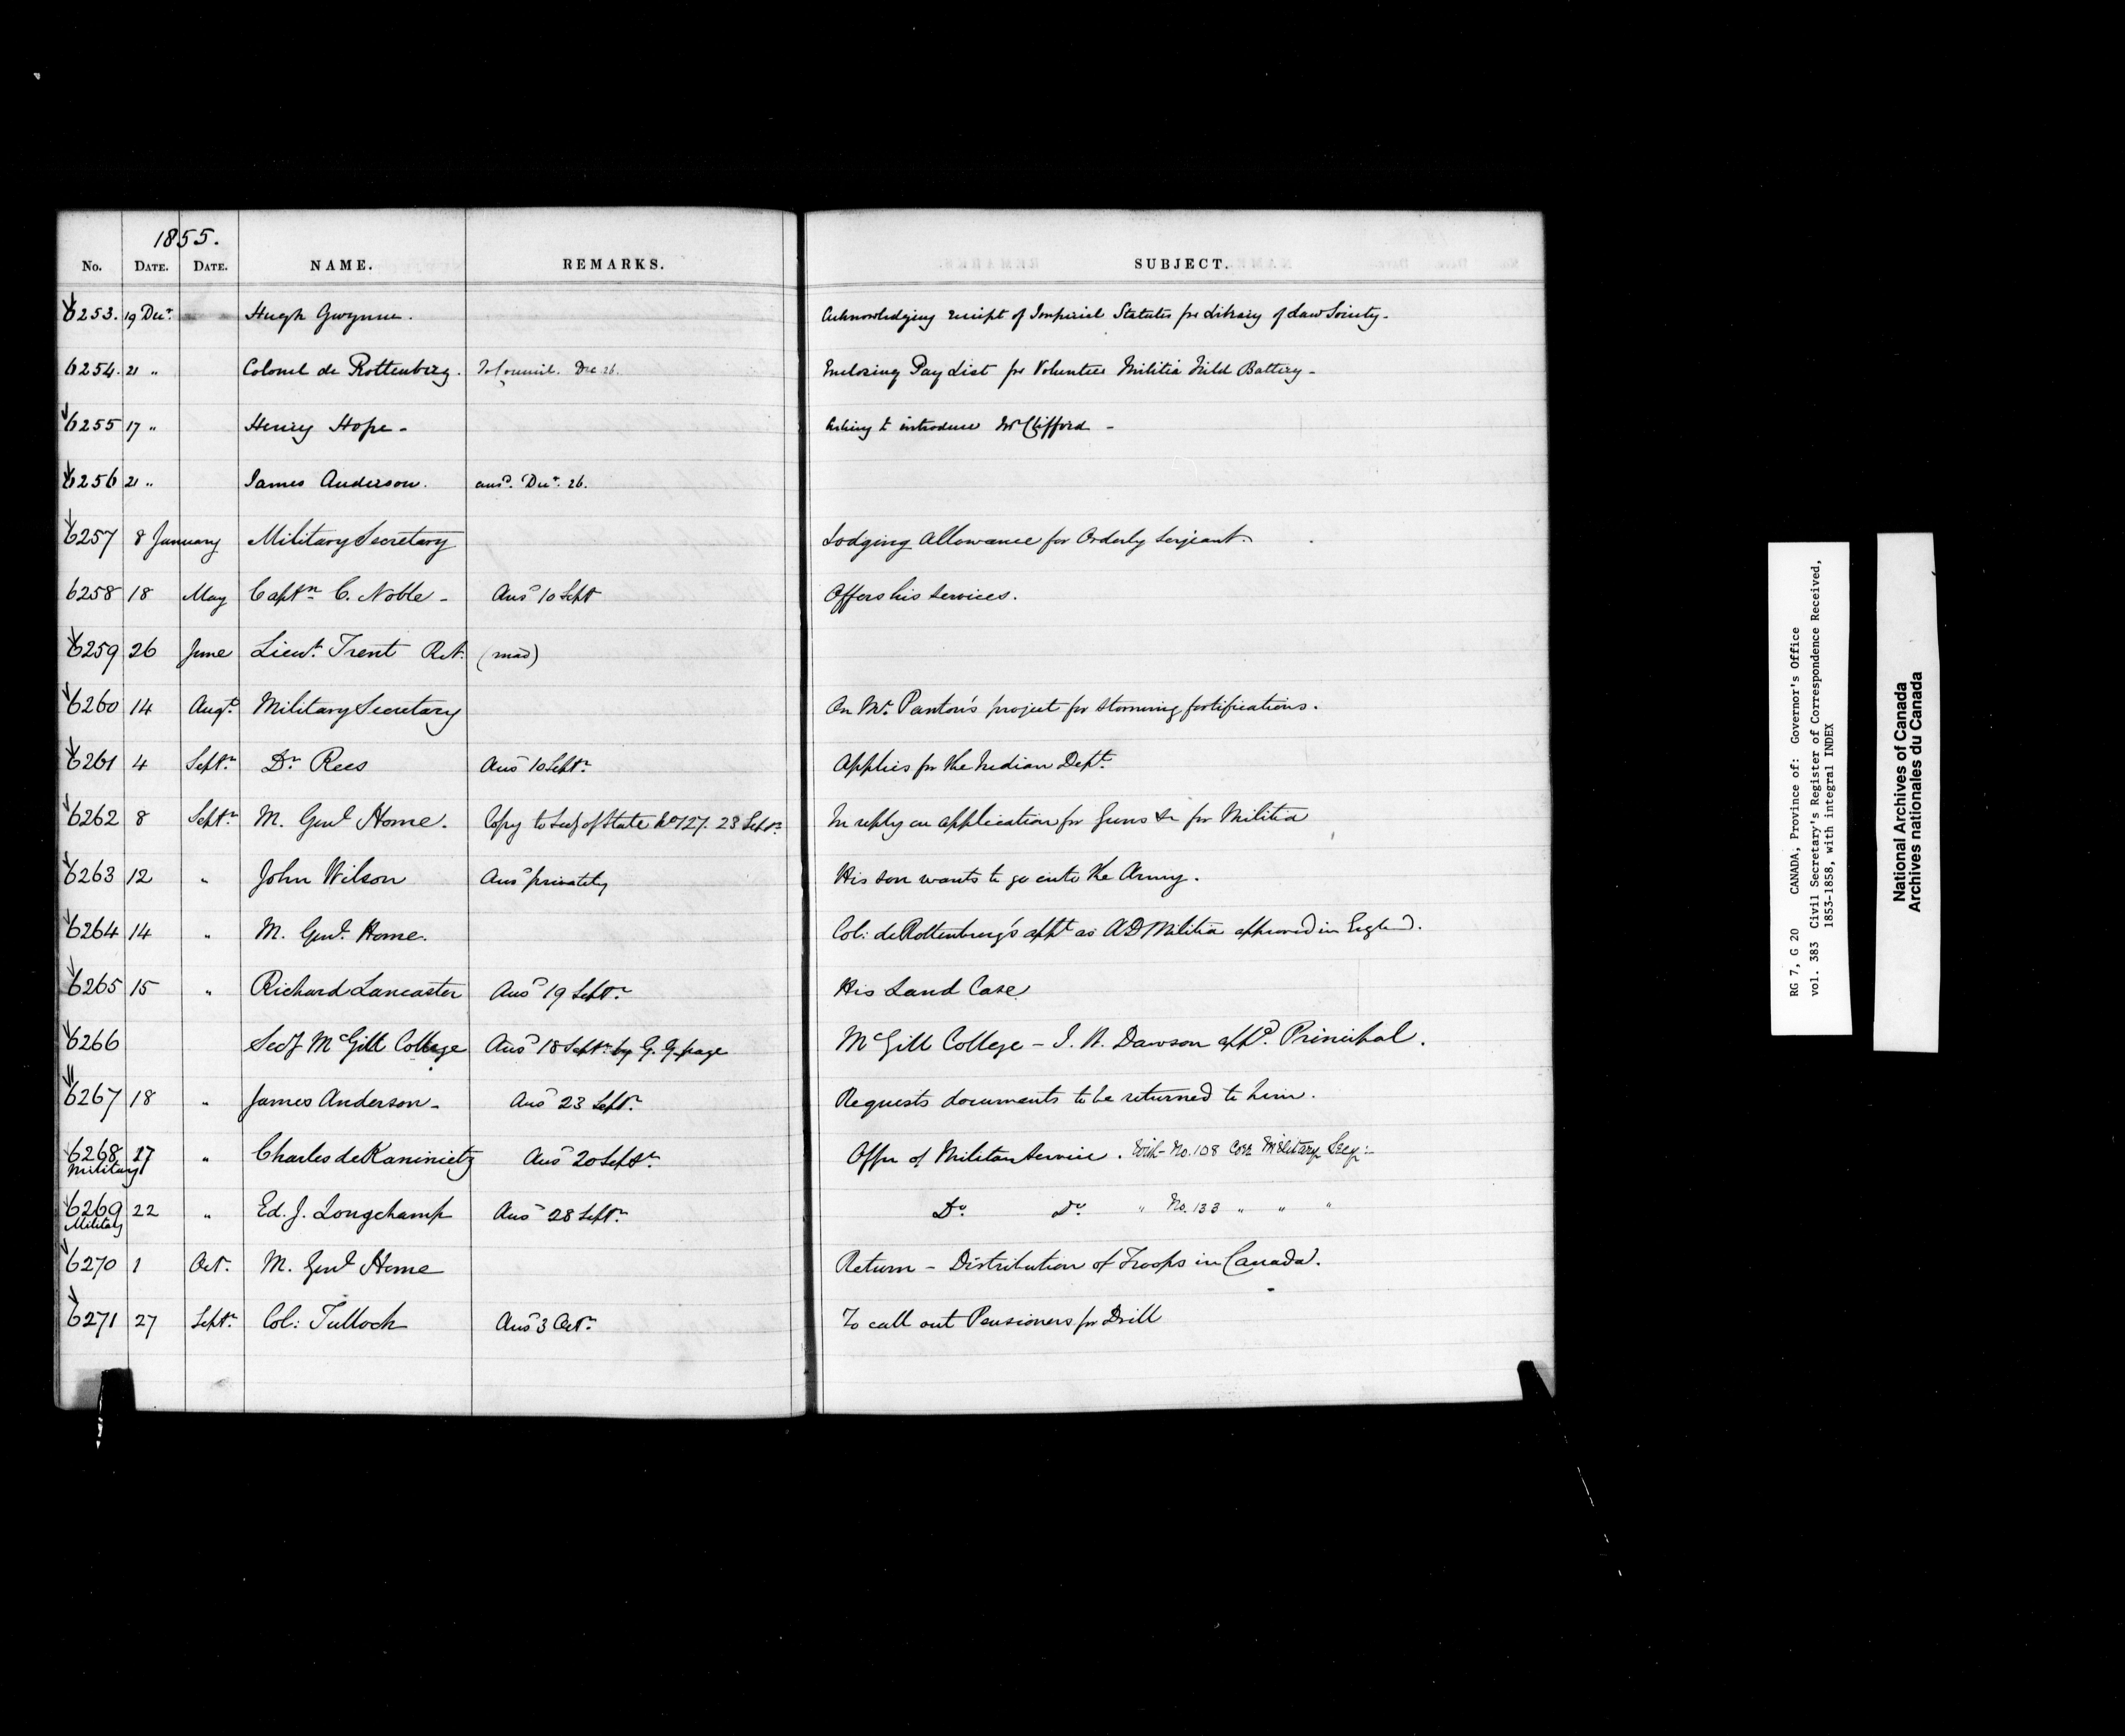 1855.
No. DATE. DATE. NAME. REMARKS. SUBJECT.
6253. 19 Decr. Hugh Gwynne. Acknowledging receipt of Imperial Statutes for Library of Law Society.
6254. 21 " Colonel de Rottenburg. To Council. Dec 26. Enclosing Pay List for Volunteer Militia Field Battery -
6255 17 " Henry Hope - Asking to introduce Mr Clifford -
6256 21 " James Anderson. ansd. Decr. 26.
6257 8 January Military Secretary Lodging Allowance for Orderly Serjeant.
6258 18 May Captn C. Noble - Ansd 10 Sept Offers his services.
6259 26 June Lieut. Trent (mad)
6260 14 Augt. Military Secretary On Mr. Panton's project for storming fortifications.
6261 4 Septr. Dr Rees Ansd 10 Septr. Applies for the Indian Dept.
6262 8 Septr. M. Genl Home. Copy to Secy of State No 127. 23 Septr. In reply on application for Guns &c for Militia
6263 12 " John Wilson Ansd privately His son wants to go into the Army.
6264 14 " M. Genl. Home. Col: de Rottenburg's appt as AG Militia approved in England.
6265 15 " Richard Lancaster Ansd 19 Septr. His Land Case
6266 Secy McGill College Ansd 18 Septr. by G. G. page McGill College - J. W. Dawson appd. Principal.
6267 18 " James Anderson - Ansd 23 Septr. Requests documents to be returned to him.
6268 17 " Charles de Kaminietz Ansd 20 Septr. Offer of Military Service. With No. 108 Corr Military Secy:
Military
6269 22 " Ed. J. Longchamp Ansd 28 Septr. Do. Do. " No. 133 " " "
Military
6270 1 Oct. M. Genl Home Return - Distribution of Troops in Canada.
6271 27 Septr. Col: Tulloch Ansd 3 Octr. To call out Pensioners for Drill
RG 7, G 20 CANADA, Province of: Governor's Office
vol. 383 Civil Secretary's Register of Correspondence Received,
1853-1858, with integral INDEX
National Archives of Canada
Archives nationales du Canada